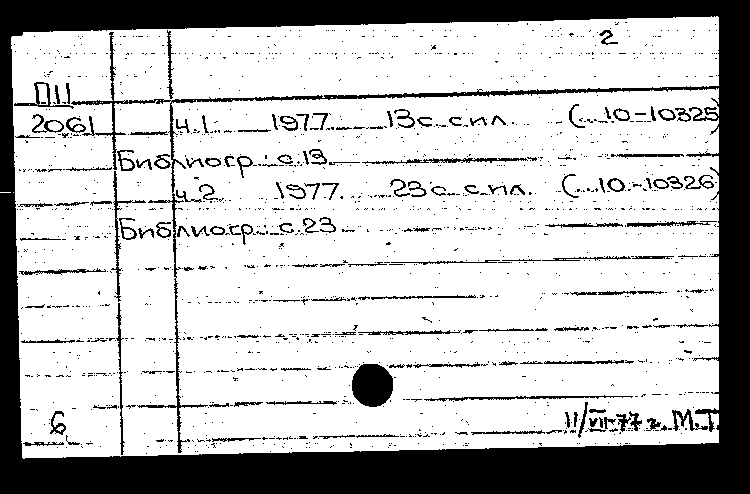 2
П11
2061 ч.1 1977 13с. с ил. (...10-10325)
Библиогр.: с.13
ч.2 1977. 23с. с ил. (...10-10326)
Библиогр.: с.23
6 11/VII-77 г. М.Т.